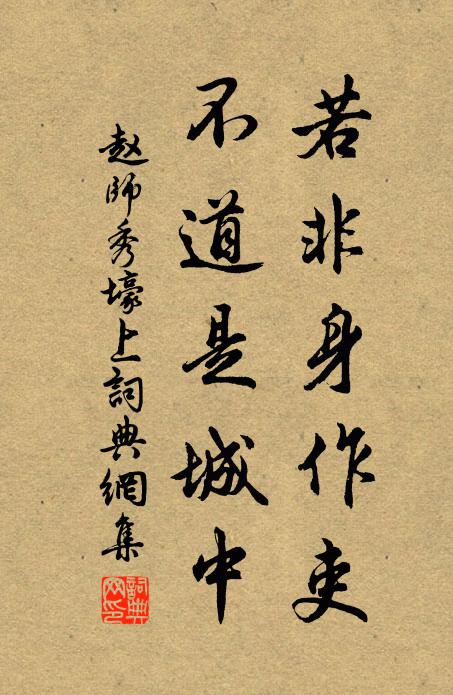 若非身作吏
不道是城中
赵師秀壕上詞典網集
詞典网印